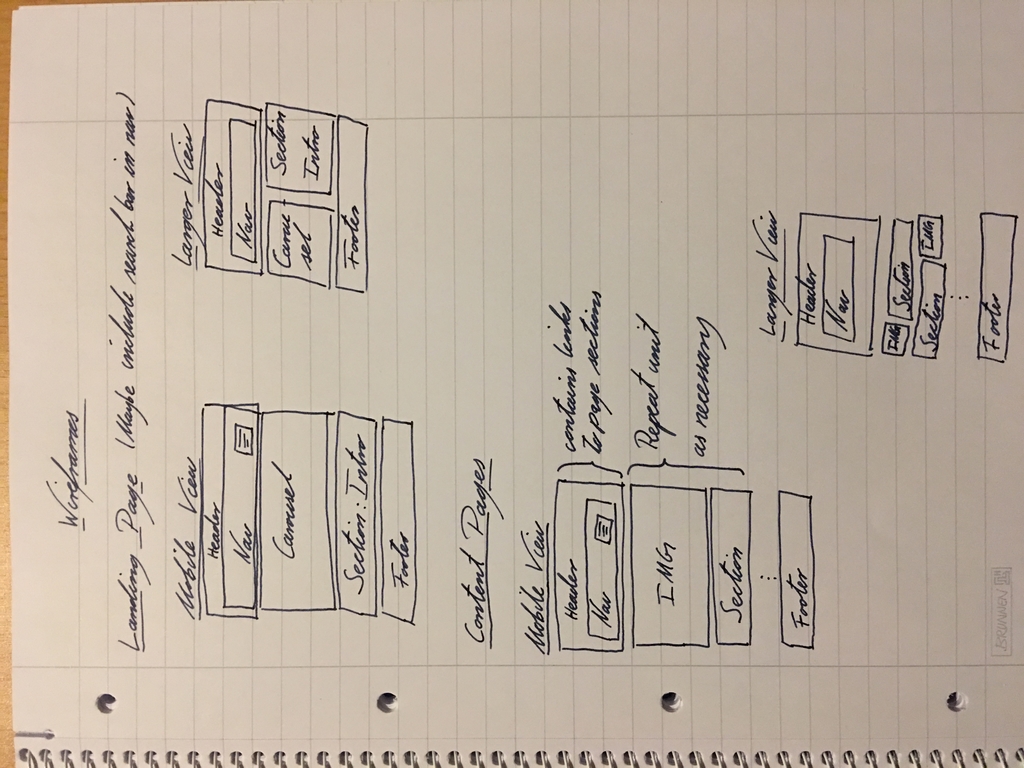 Wireframes
Landing Page (Maybe include search bar in nav)
Mobile View
Header
Nav
Carousel
Section: Intro
Footer
Larger View
Header
Nav
Carou-
sel
Section
Intro
Footer
Content Pages
Mobile View
Header
Nav
contains links
to page sections
IMG
Section
Repeat unit
as necessary
⋮
Footer
Larger View
Header
Nav
IMG Section
Section IMG
⋮
Footer
BRUNNEN